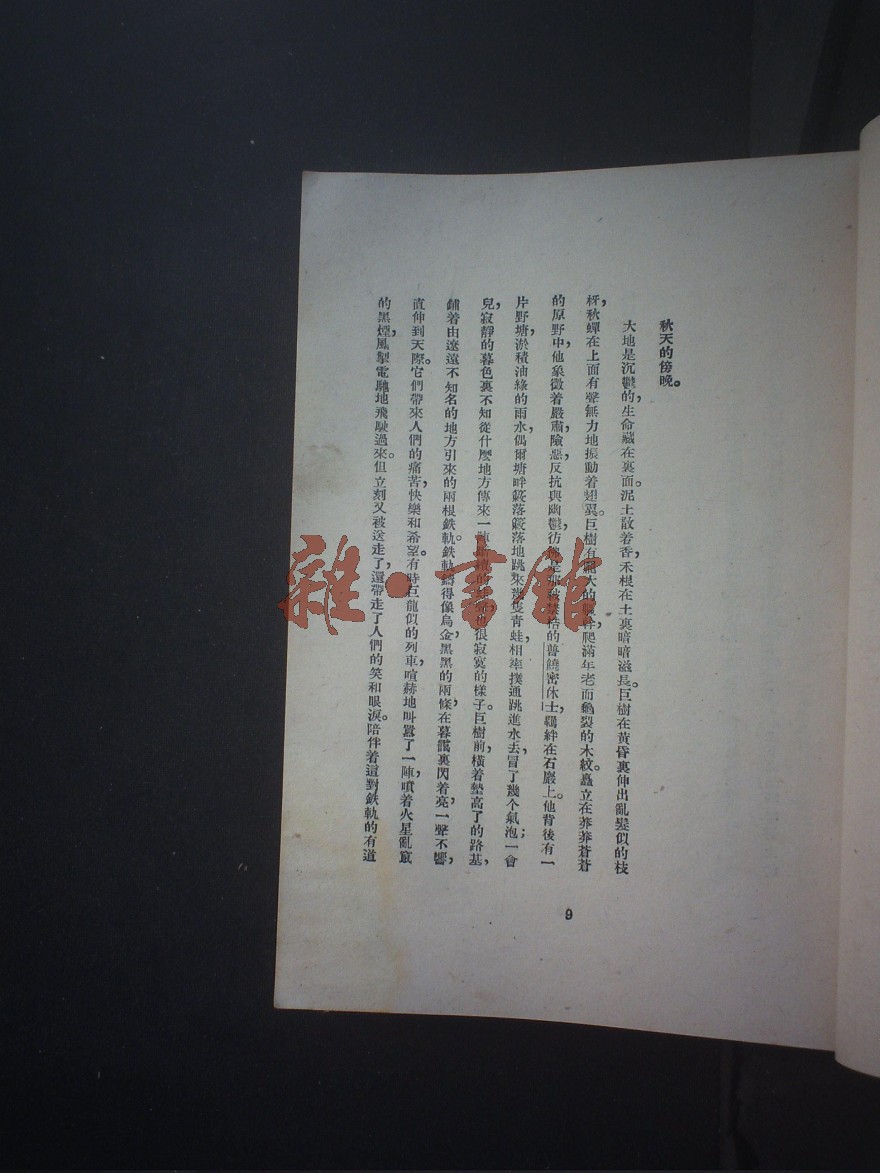 秋天的傍晚。
大地是沉鬱的，生命藏在裏面。泥土散着香，禾根在土裏暗暗滋長。巨樹在黃昏裏伸出亂髮似的枝
枒，秋蟬在上面有聲無力地振動着翅翼。巨樹有龐大的軀幹，爬滿年老而龜裂的木紋。矗立在莽莽蒼蒼
的原野中，他象徵着嚴肅，險惡，反抗與幽鬱，彷彿是那被禁梏的普饒密休士，羈絆在石巖上。他背後有一
片野塘，淤積油綠的雨水，偶爾塘畔簌落簌落地跳來幾隻青蛙，相率撲通跳進水去，冒了幾个氣泡；一會
兒，寂靜的暮色裏不知從什麽地方傳來一陣斷續的蛙聲，也很寂寞的樣子。巨樹前，橫着墊高了的路基，
鋪着由遼遠不知名的地方引來的兩根鉄軌。鉄軌鑄得像烏金，黑黑的兩條，在暮靄裏閃着亮，一聲不響，
直伸到天際。它們帶來人們的痛苦，快樂和希望。有時巨龍似的列車，喧赫地叫囂了一陣，噴着火星亂竄
的黑煙，風掣電馳地飛駛過來。但立刻又被送走了，還帶走了人們的笑和眼淚。陪伴着這對鉄軌的有道
9
雜·書館